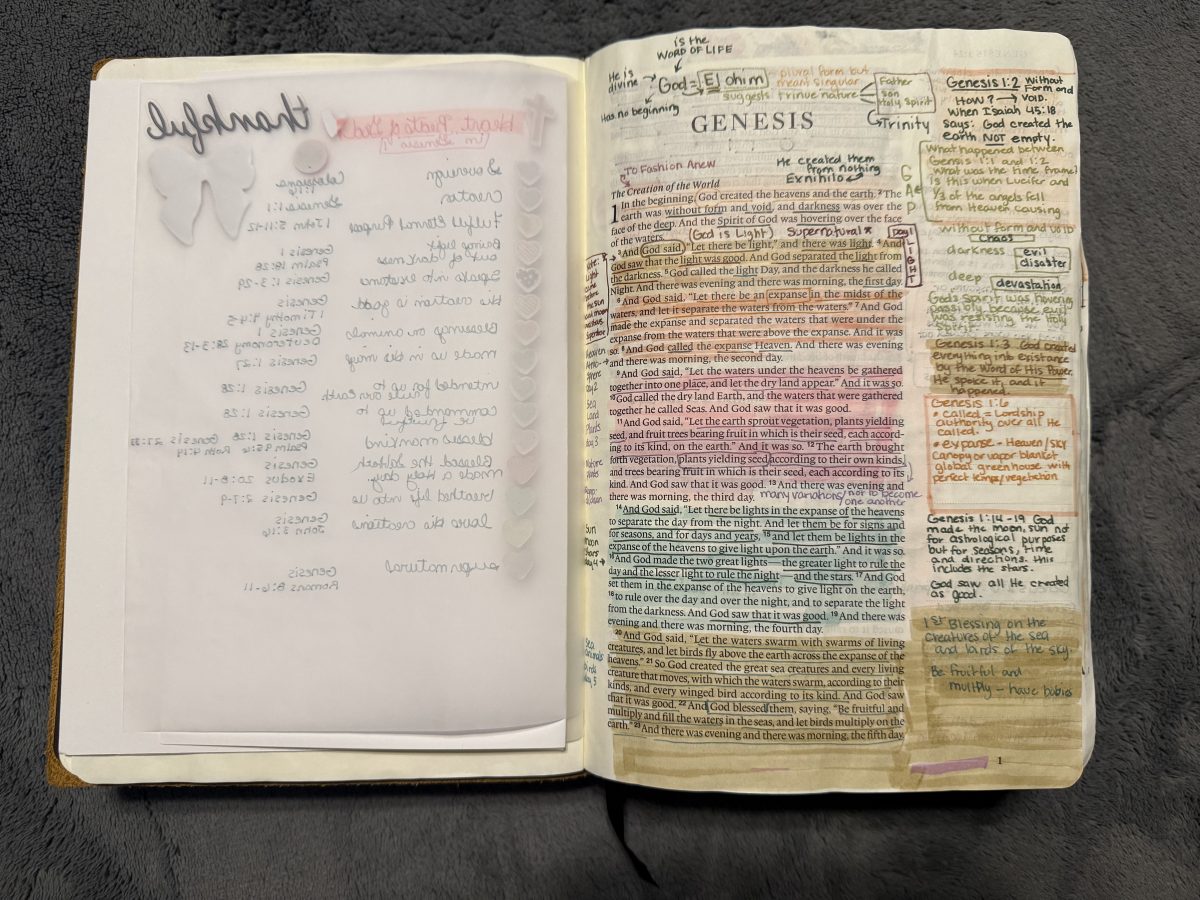 thankful
Heart Beats of God
in Genesis
Sovereign Colossians
Creator Genesis 1:1
Fulfill Eternal Purpose 1 John 5:11-12
Bring light Genesis 1
out of darkness Psalm 18:28
Speaks into existence Genesis 1:3-29
His creation is good Genesis
1 Timothy 4:4-5
Blessings on animals Genesis 1
Deuteronomy 28:3-13
made us in his image Genesis 1:27
intended for us to Genesis 1:28
rule our Earth
commanded us to Genesis 1:28
be fruitful
blesses mankind Genesis 1:28 Genesis 27:
Psalm 45: Ruth 4:14
Blessed the Sabbath Genesis
made a Holy day Exodus 20:8-11
breathed life into us Genesis 2:7-9
loves his creations Genesis
John 3:16
supernatural Genesis
Romans 8:6-11
is the
WORD OF LIFE
He is
divine
God = Elohim
plural form but
meant singular
suggests trinue nature
Father
Son
Holy Spirit
Trinity
Has no beginning
GENESIS
To Fashion Anew
He created them
from nothing
Exnihilo
The Creation of the World
1 In the beginning, God created the heavens and the earth. 2 The
earth was without form and void, and darkness was over the
face of the deep. And the Spirit of God was hovering over the face
of the waters.
(God is Light) Supernatural *
Day 1
LIGHT
3 And God said, "Let there be light," and there was light. 4 And
God saw that the light was good. And God separated the light from
the darkness. 5 God called the light Day, and the darkness he called
Night. And there was evening and there was morning, the first day.
6 And God said, "Let there be an expanse in the midst of the
waters, and let it separate the waters from the waters." 7 And God
made the expanse and separated the waters that were under the
expanse from the waters that were above the expanse. And it was
so. 8 And God called the expanse Heaven. And there was evening
and there was morning, the second day.
9 And God said, "Let the waters under the heavens be gathered
together into one place, and let the dry land appear." And it was so.
10 God called the dry land Earth, and the waters that were gathered
together he called Seas. And God saw that it was good.
11 And God said, "Let the earth sprout vegetation, plants yielding
seed, and fruit trees bearing fruit in which is their seed, each accord-
ing to its kind, on the earth." And it was so. 12 The earth brought
forth vegetation, plants yielding seed according to their own kinds,
and trees bearing fruit in which is their seed, each according to its
kind. And God saw that it was good. 13 And there was evening and
there was morning, the third day.
many variations/not to become
one another
14 And God said, "Let there be lights in the expanse of the heavens
to separate the day from the night. And let them be for signs and
for seasons, and for days and years, 15 and let them be lights in the
expanse of the heavens to give light upon the earth." And it was so.
16 And God made the two great lights—the greater light to rule the
day and the lesser light to rule the night—and the stars. 17 And God
set them in the expanse of the heavens to give light on the earth,
18 to rule over the day and over the night, and to separate the light
from the darkness. And God saw that it was good. 19 And there was
evening and there was morning, the fourth day.
20 And God said, "Let the waters swarm with swarms of living
creatures, and let birds fly above the earth across the expanse of the
heavens." 21 So God created the great sea creatures and every living
creature that moves, with which the waters swarm, according to their
kinds, and every winged bird according to its kind. And God saw
that it was good. 22 And God blessed them, saying, "Be fruitful and
multiply and fill the waters in the seas, and let birds multiply on the
earth." 23 And there was evening and there was morning, the fifth day.
Heaven
Day 2
Sea
Land
Plants
Day 3
Sun
moon
stars
Day 4
Sea
birds
Day 5
GAP
Genesis 1:2 Without
Form and
HOW? → VOID.
When Isaiah 45:18
says: God created the
earth NOT empty.
What happened between
Gensis 1:1 and 1:2
What was the time frame?
Is this when Lucifer and
1/3 of the angels fell
from Heaven causing
without form and void
Chaos
darkness evil
disaster
deep devastation
God's spirit was hovering
passily because evil
was resisting the Holy
Spirit.
Genesis 1:3 God created
everything into existance
by the Word of His Power.
He spoke it, and it
happened
Genesis 1:6
• called = Lordship
authority over all He
called.
• expanse - Heaven/sky
canopy or vapor blanket
global greenhouse with
perfect temps/vegetation
Genesis 1:14-19 God
made the moon, sun not
for astrological purposes
but for seasons, time
and directions. This
includes the stars.
God saw all He created
as good.
1st Blessing on the
creatures of the sea
and lands of the sky.
Be fruitful and
multiply - have babies
1